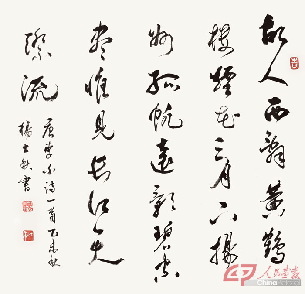 故人西辞黄鹤
楼烟花三月下扬
州孤帆远影碧空
尽惟见长江天
际流
唐李白诗一首
书
人民书画
China